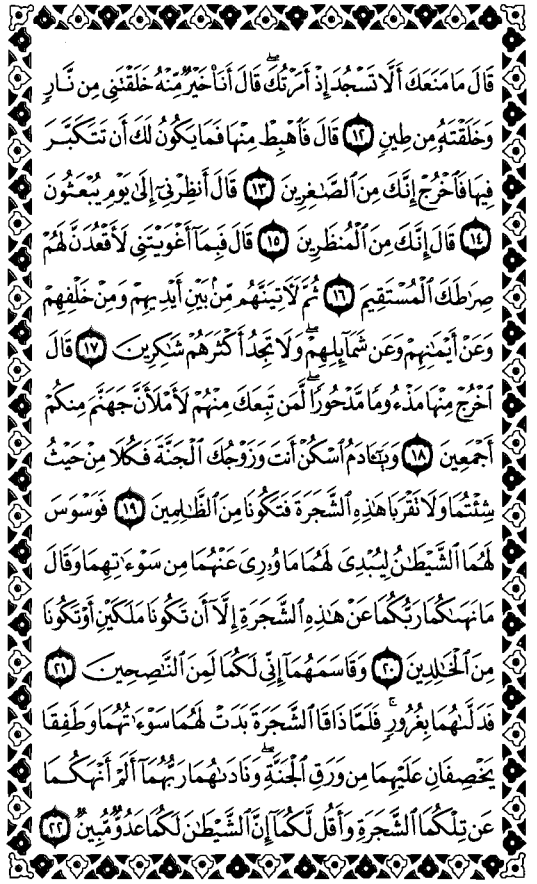 قَالَ مَا مَنَعَكَ أَلَّا تَسْجُدَ إِذْ أَمَرْتُكَ ۖ قَالَ أَنَا۠ خَيْرٌ مِّنْهُ خَلَقْتَنِى مِن نَّارٍ
وَخَلَقْتَهُۥ مِن طِينٍ ١٢ قَالَ فَٱهْبِطْ مِنْهَا فَمَا يَكُونُ لَكَ أَن تَتَكَبَّرَ
فِيهَا فَٱخْرُجْ إِنَّكَ مِنَ ٱلصَّٰغِرِينَ ١٣ قَالَ أَنظِرْنِىٓ إِلَىٰ يَوْمِ يُبْعَثُونَ
١٤ قَالَ إِنَّكَ مِنَ ٱلْمُنظَرِينَ ١٥ قَالَ فَبِمَآ أَغْوَيْتَنِى لَأَقْعُدَنَّ لَهُمْ
صِرَٰطَكَ ٱلْمُسْتَقِيمَ ١٦ ثُمَّ لَءَاتِيَنَّهُم مِّنۢ بَيْنِ أَيْدِيهِمْ وَمِنْ خَلْفِهِمْ
وَعَنْ أَيْمَٰنِهِمْ وَعَن شَمَآئِلِهِمْ ۖ وَلَا تَجِدُ أَكْثَرَهُمْ شَٰكِرِينَ ١٧ قَالَ
ٱخْرُجْ مِنْهَا مَذْءُومًا مَّدْحُورًا ۖ لَّمَن تَبِعَكَ مِنْهُمْ لَأَمْلَأَنَّ جَهَنَّمَ مِنكُمْ
أَجْمَعِينَ ١٨ وَيَٰٓـَٔادَمُ ٱسْكُنْ أَنتَ وَزَوْجُكَ ٱلْجَنَّةَ فَكُلَا مِنْ حَيْثُ
شِئْتُمَا وَلَا تَقْرَبَا هَٰذِهِ ٱلشَّجَرَةَ فَتَكُونَا مِنَ ٱلظَّٰلِمِينَ ١٩ فَوَسْوَسَ
لَهُمَا ٱلشَّيْطَٰنُ لِيُبْدِىَ لَهُمَا مَا وُۥرِىَ عَنْهُمَا مِن سَوْءَٰتِهِمَا وَقَالَ
مَا نَهَىٰكُمَا رَبُّكُمَا عَنْ هَٰذِهِ ٱلشَّجَرَةِ إِلَّآ أَن تَكُونَا مَلَكَيْنِ أَوْ تَكُونَا
مِنَ ٱلْخَٰلِدِينَ ٢٠ وَقَاسَمَهُمَآ إِنِّى لَكُمَا لَمِنَ ٱلنَّٰصِحِينَ ٢١
فَدَلَّىٰهُمَا بِغُرُورٍ ۚ فَلَمَّا ذَاقَا ٱلشَّجَرَةَ بَدَتْ لَهُمَا سَوْءَٰتُهُمَا وَطَفِقَا
يَخْصِفَانِ عَلَيْهِمَا مِن وَرَقِ ٱلْجَنَّةِ ۖ وَنَادَىٰهُمَا رَبُّهُمَآ أَلَمْ أَنْهَكُمَا
عَن تِلْكُمَا ٱلشَّجَرَةِ وَأَقُل لَّكُمَآ إِنَّ ٱلشَّيْطَٰنَ لَكُمَا عَدُوٌّ مُّبِينٌ ٢٢